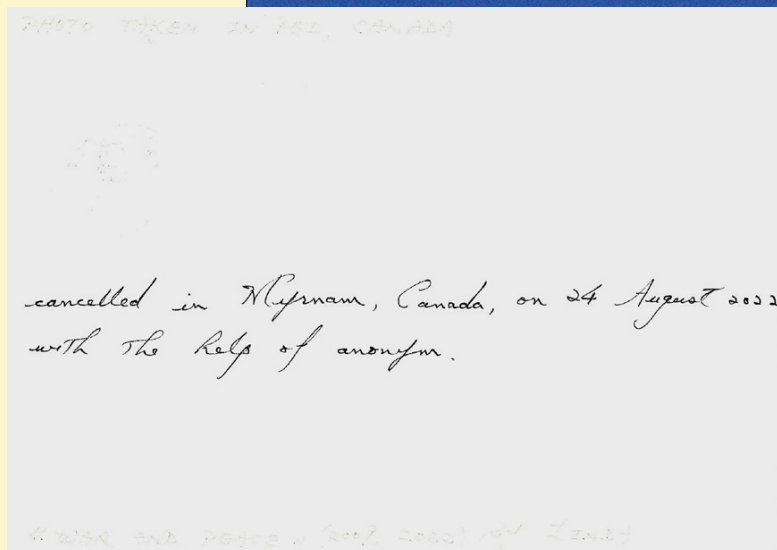 PHOTO TAKEN IN PEI, CANADA
cancelled in Myrnam, Canada, on 24 August 2022
with the help of anonym.
"WAR AND PEACE" 2022) BY